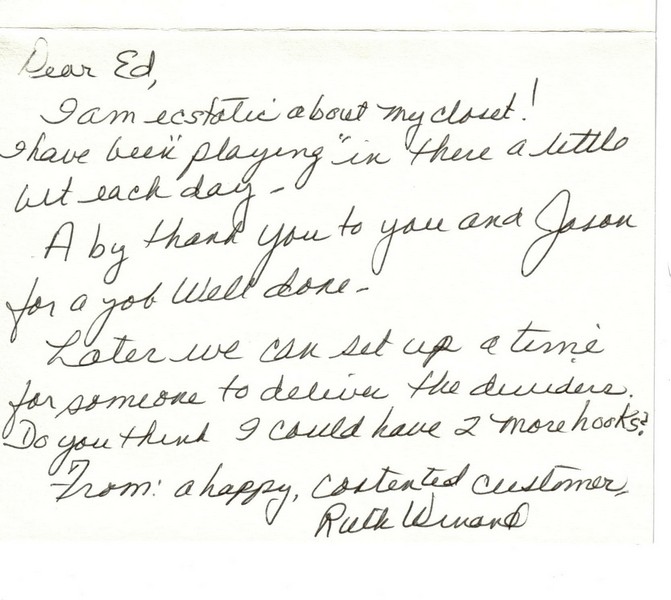 Dear Ed,
I am ecstatic about my closet!
I have been "playing" in there a little
bit each day -
A big thank you to you and Jason
for a job Well done -
Later we can set up a time
for someone to deliver the dividers.
Do you think I could have 2 more hooks?
From: a happy, contented customer,
Ruth Winand